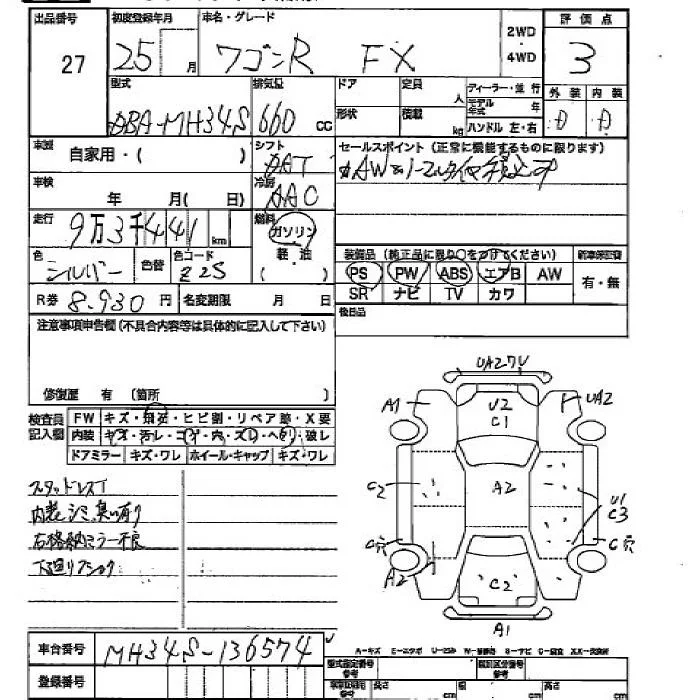 出品番号 初度登録年月 車名・グレード 2WD 評価点
27 25 月 ワゴンR FX 4WD 3
型式 排気量 ドア 定員 人 ディーラー・並行 外装 内装
DBA-MH34S 660 cc 形状 積載 kg モデル年式 年 ハンドル 左・右 D D
車歴 自家用・( ) シフト AT セールスポイント(正常に機能するものに限ります)
車検 年 月( 日) 冷房 AAC
走行 9万3千441 km 燃料 ガソリン
軽・油
色 シルバー 色替 色コード Z2S ( )
装備品(純正品に限り○をつけてください) 新車保証書
PS PW ABS エアB AW 有・無
SR ナビ TV カワ
R券 8.930 円 名変期限 月 日 後日品
注意事項申告欄(不具合内容等は具体的に記入して下さい)
修復歴 有 (箇所 )
検査員記入欄 FW キズ・飛石・ヒビ割・リペア跡・X要
内装 キズ・汚レ・コゲ・穴・スレ・ヘタリ・破レ
ドアミラー キズ・ワレ ホイール・キャップ キズ・ワレ
スタッドレスT
内装シミ、臭い有り
右格納ミラー不良
下廻りサビ
UA2ワレ
A1 U2 UA2
C1
C2 A2 U1
C3
C穴 C穴
A2 C2
A1
車台番号 MH34S-136574
登録番号
A-キズ E-エクボ U-凹み W-補修跡 S-サビ C-腐食 XX-交換済
型式指定番号 参考 類別区分番号 参考
長さ cm 幅 cm 高さ cm